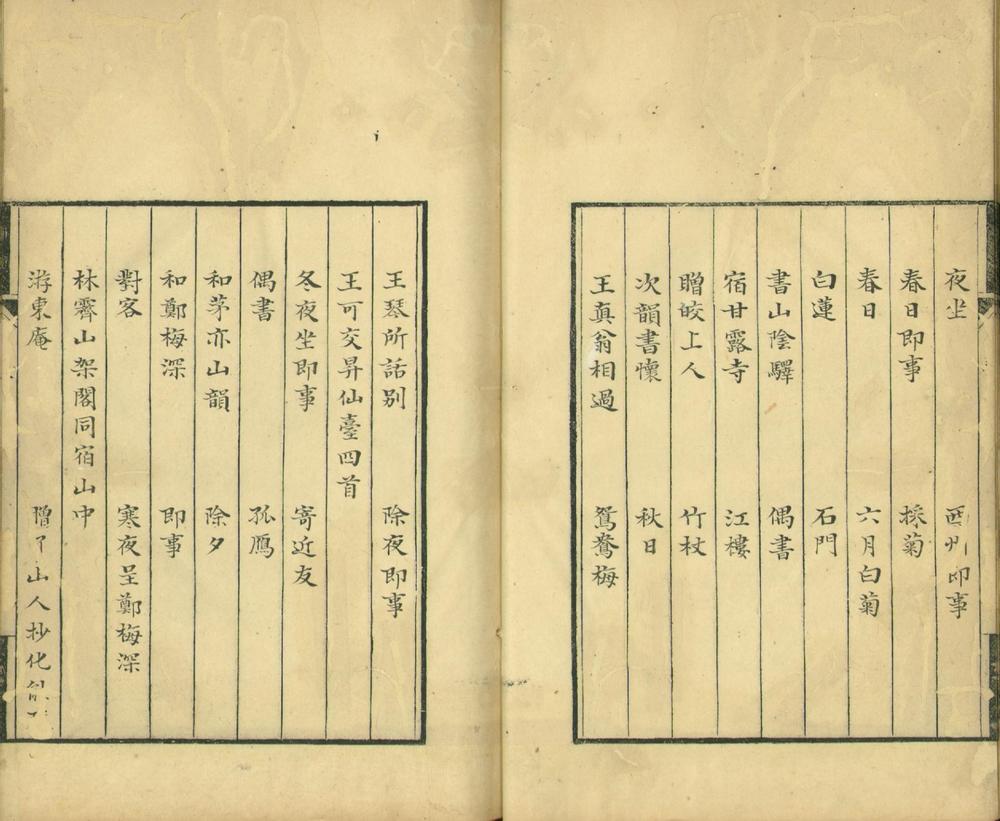 夜坐　西州即事
春日即事　採菊
春日　六月白菊
白蓮　石門
書山陰驛　偶書
宿甘露寺　江樓
贈皎上人　竹杖
次韻書懷　秋日
王真翁相過　鴛鴦梅
王琴所話别　除夜即事
王可交昇仙臺四首
冬夜坐即事　寄近友
偶書　孤鴈
和茅亦山韻　除夕
和鄭梅深　即事
對客　寒夜呈鄭梅深
林霽山架閣同宿山中
游東庵　贈　山人抄化